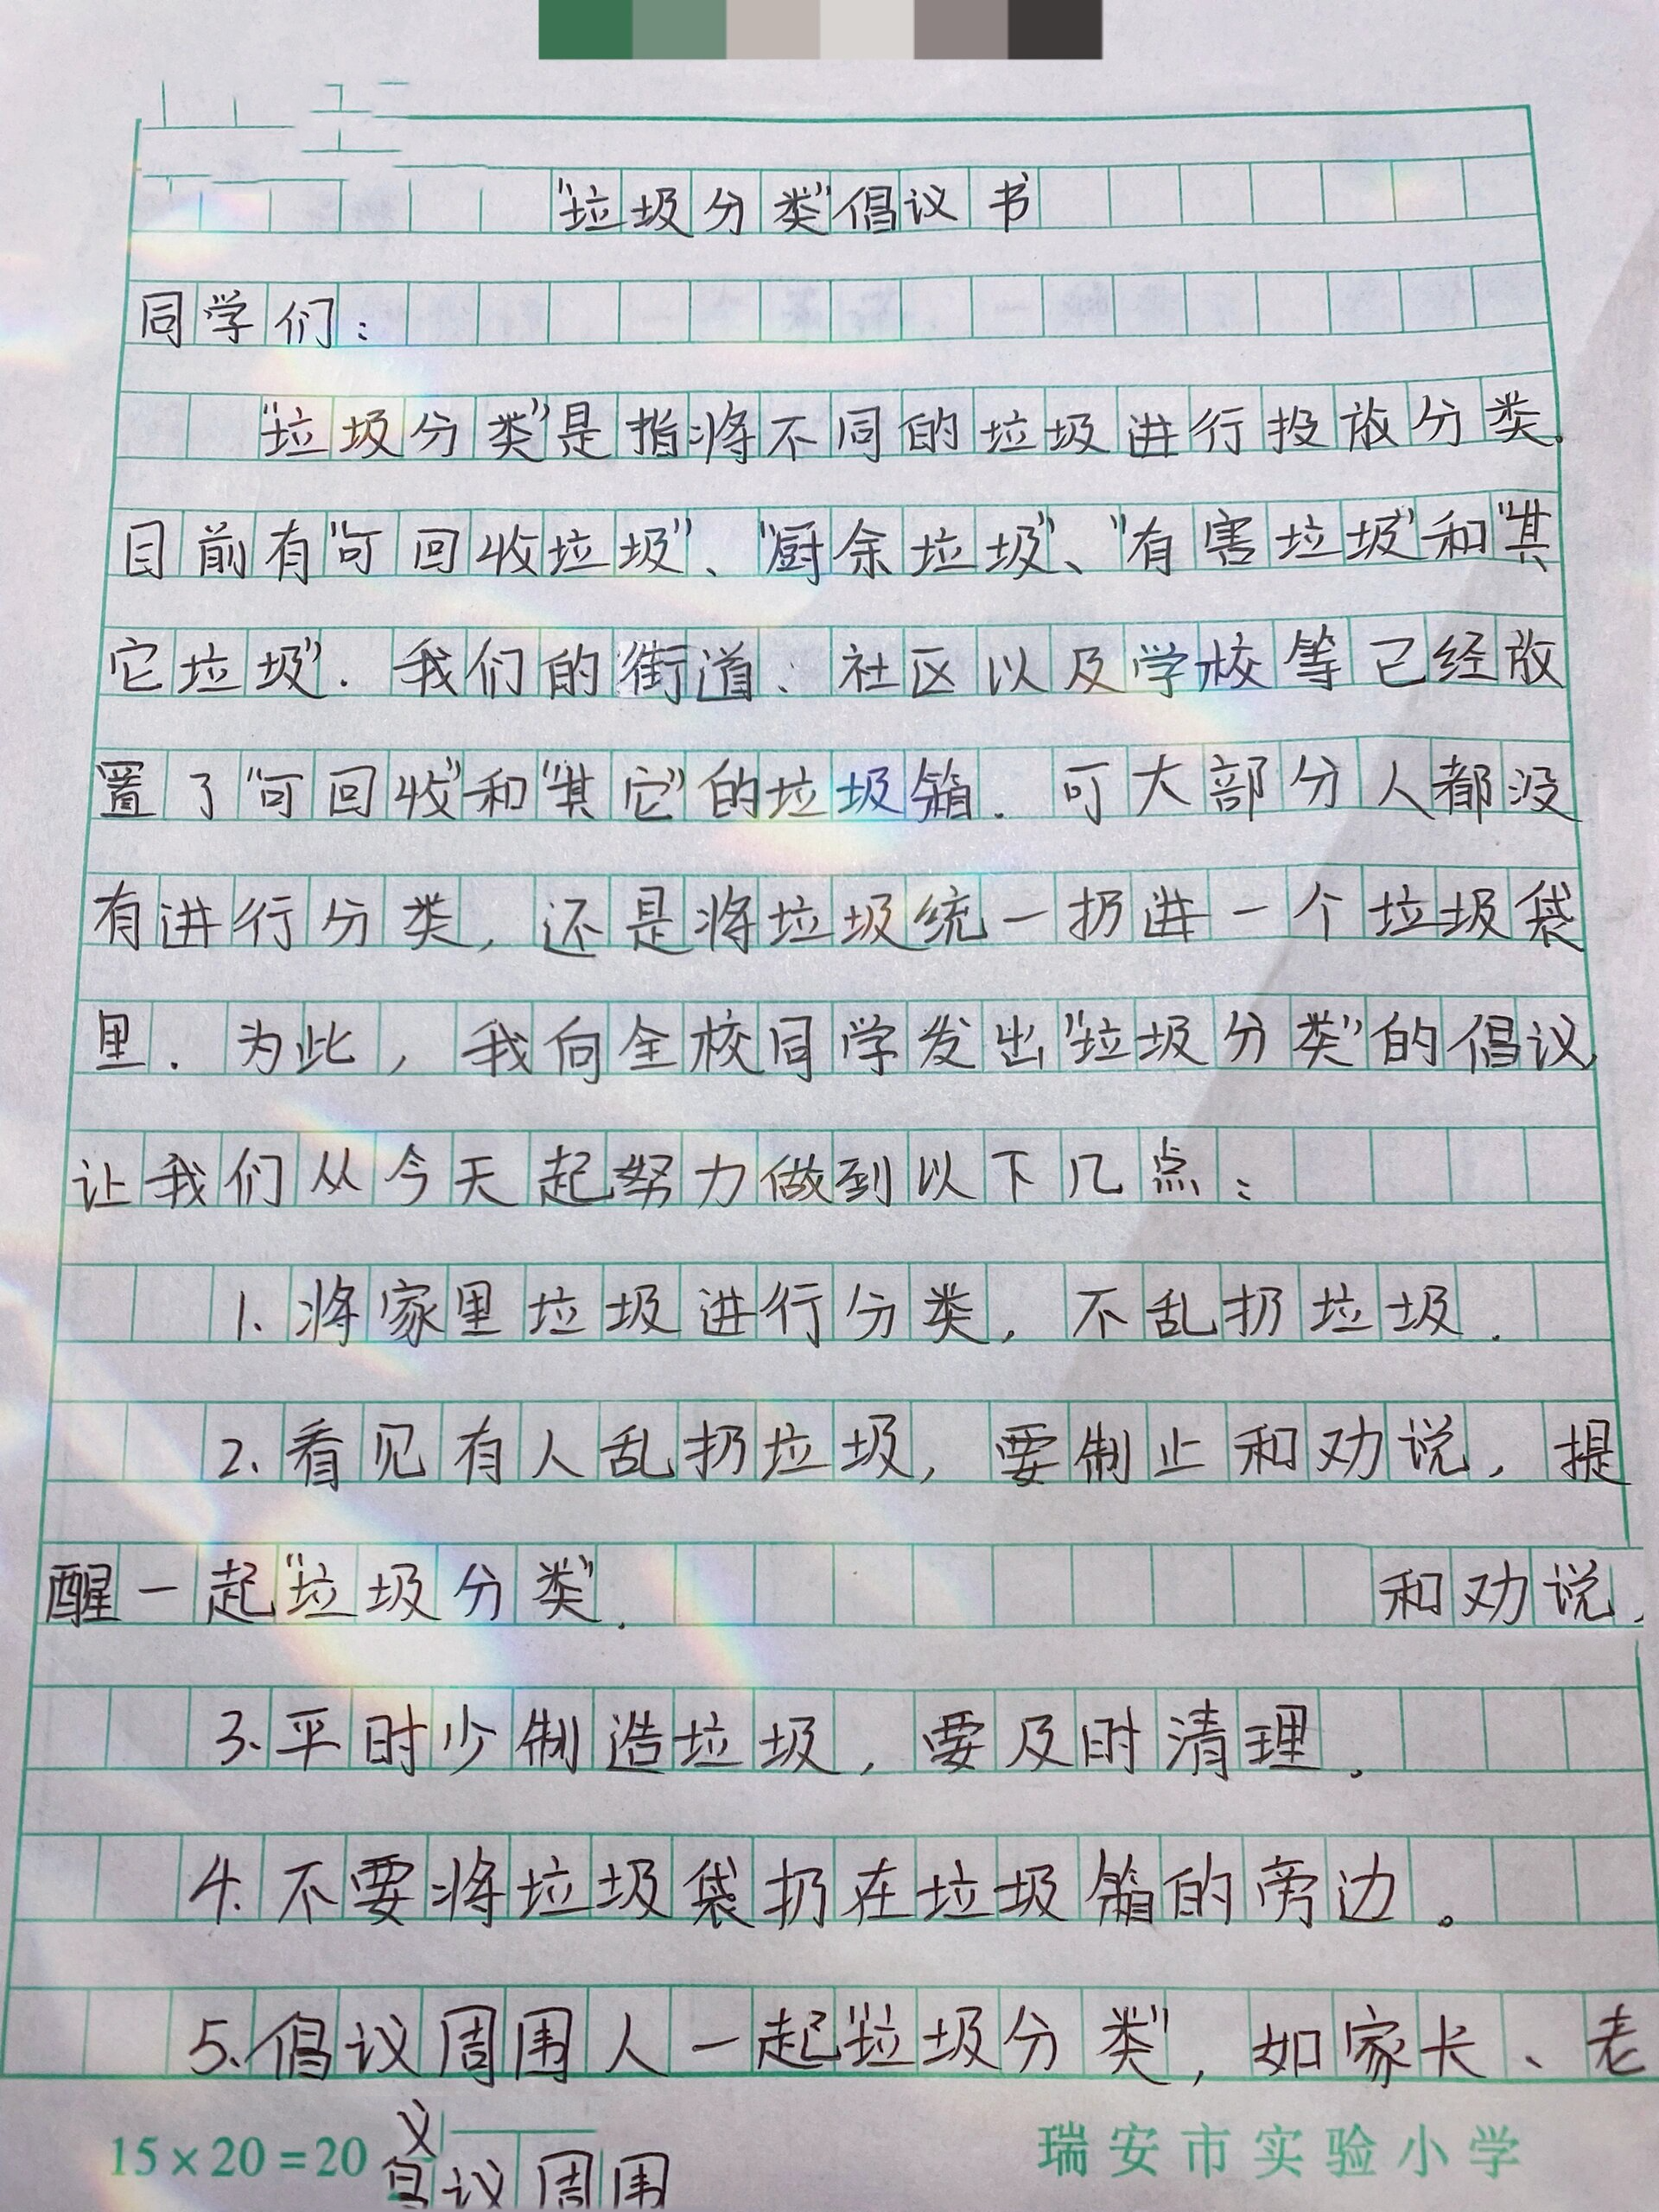 “垃圾分类”倡议书
同学们:
“垃圾分类”是指将不同的垃圾进行投放分类。
目前有“可回收垃圾”、“厨余垃圾”、“有害垃圾”和“其
它垃圾”.我们的街道、社区以及学校等已经放
置了“可回收”和“其它”的垃圾箱.可大部分人都没
有进行分类,还是将垃圾统一扔进一个垃圾袋
里.为此,我向全校同学发出“垃圾分类”的倡议,
让我们从今天起努力做到以下几点:
1.将家里垃圾进行分类,不乱扔垃圾.
2.看见有人乱扔垃圾,要制止和劝说,提
醒一起“垃圾分类”. 和劝说,
3.平时少制造垃圾,要及时清理.
4.不要将垃圾袋扔在垃圾箱的旁边。
5.倡议周围人一起“垃圾分类”,如家长、老
15×20=20 瑞安市实验小学
议周围